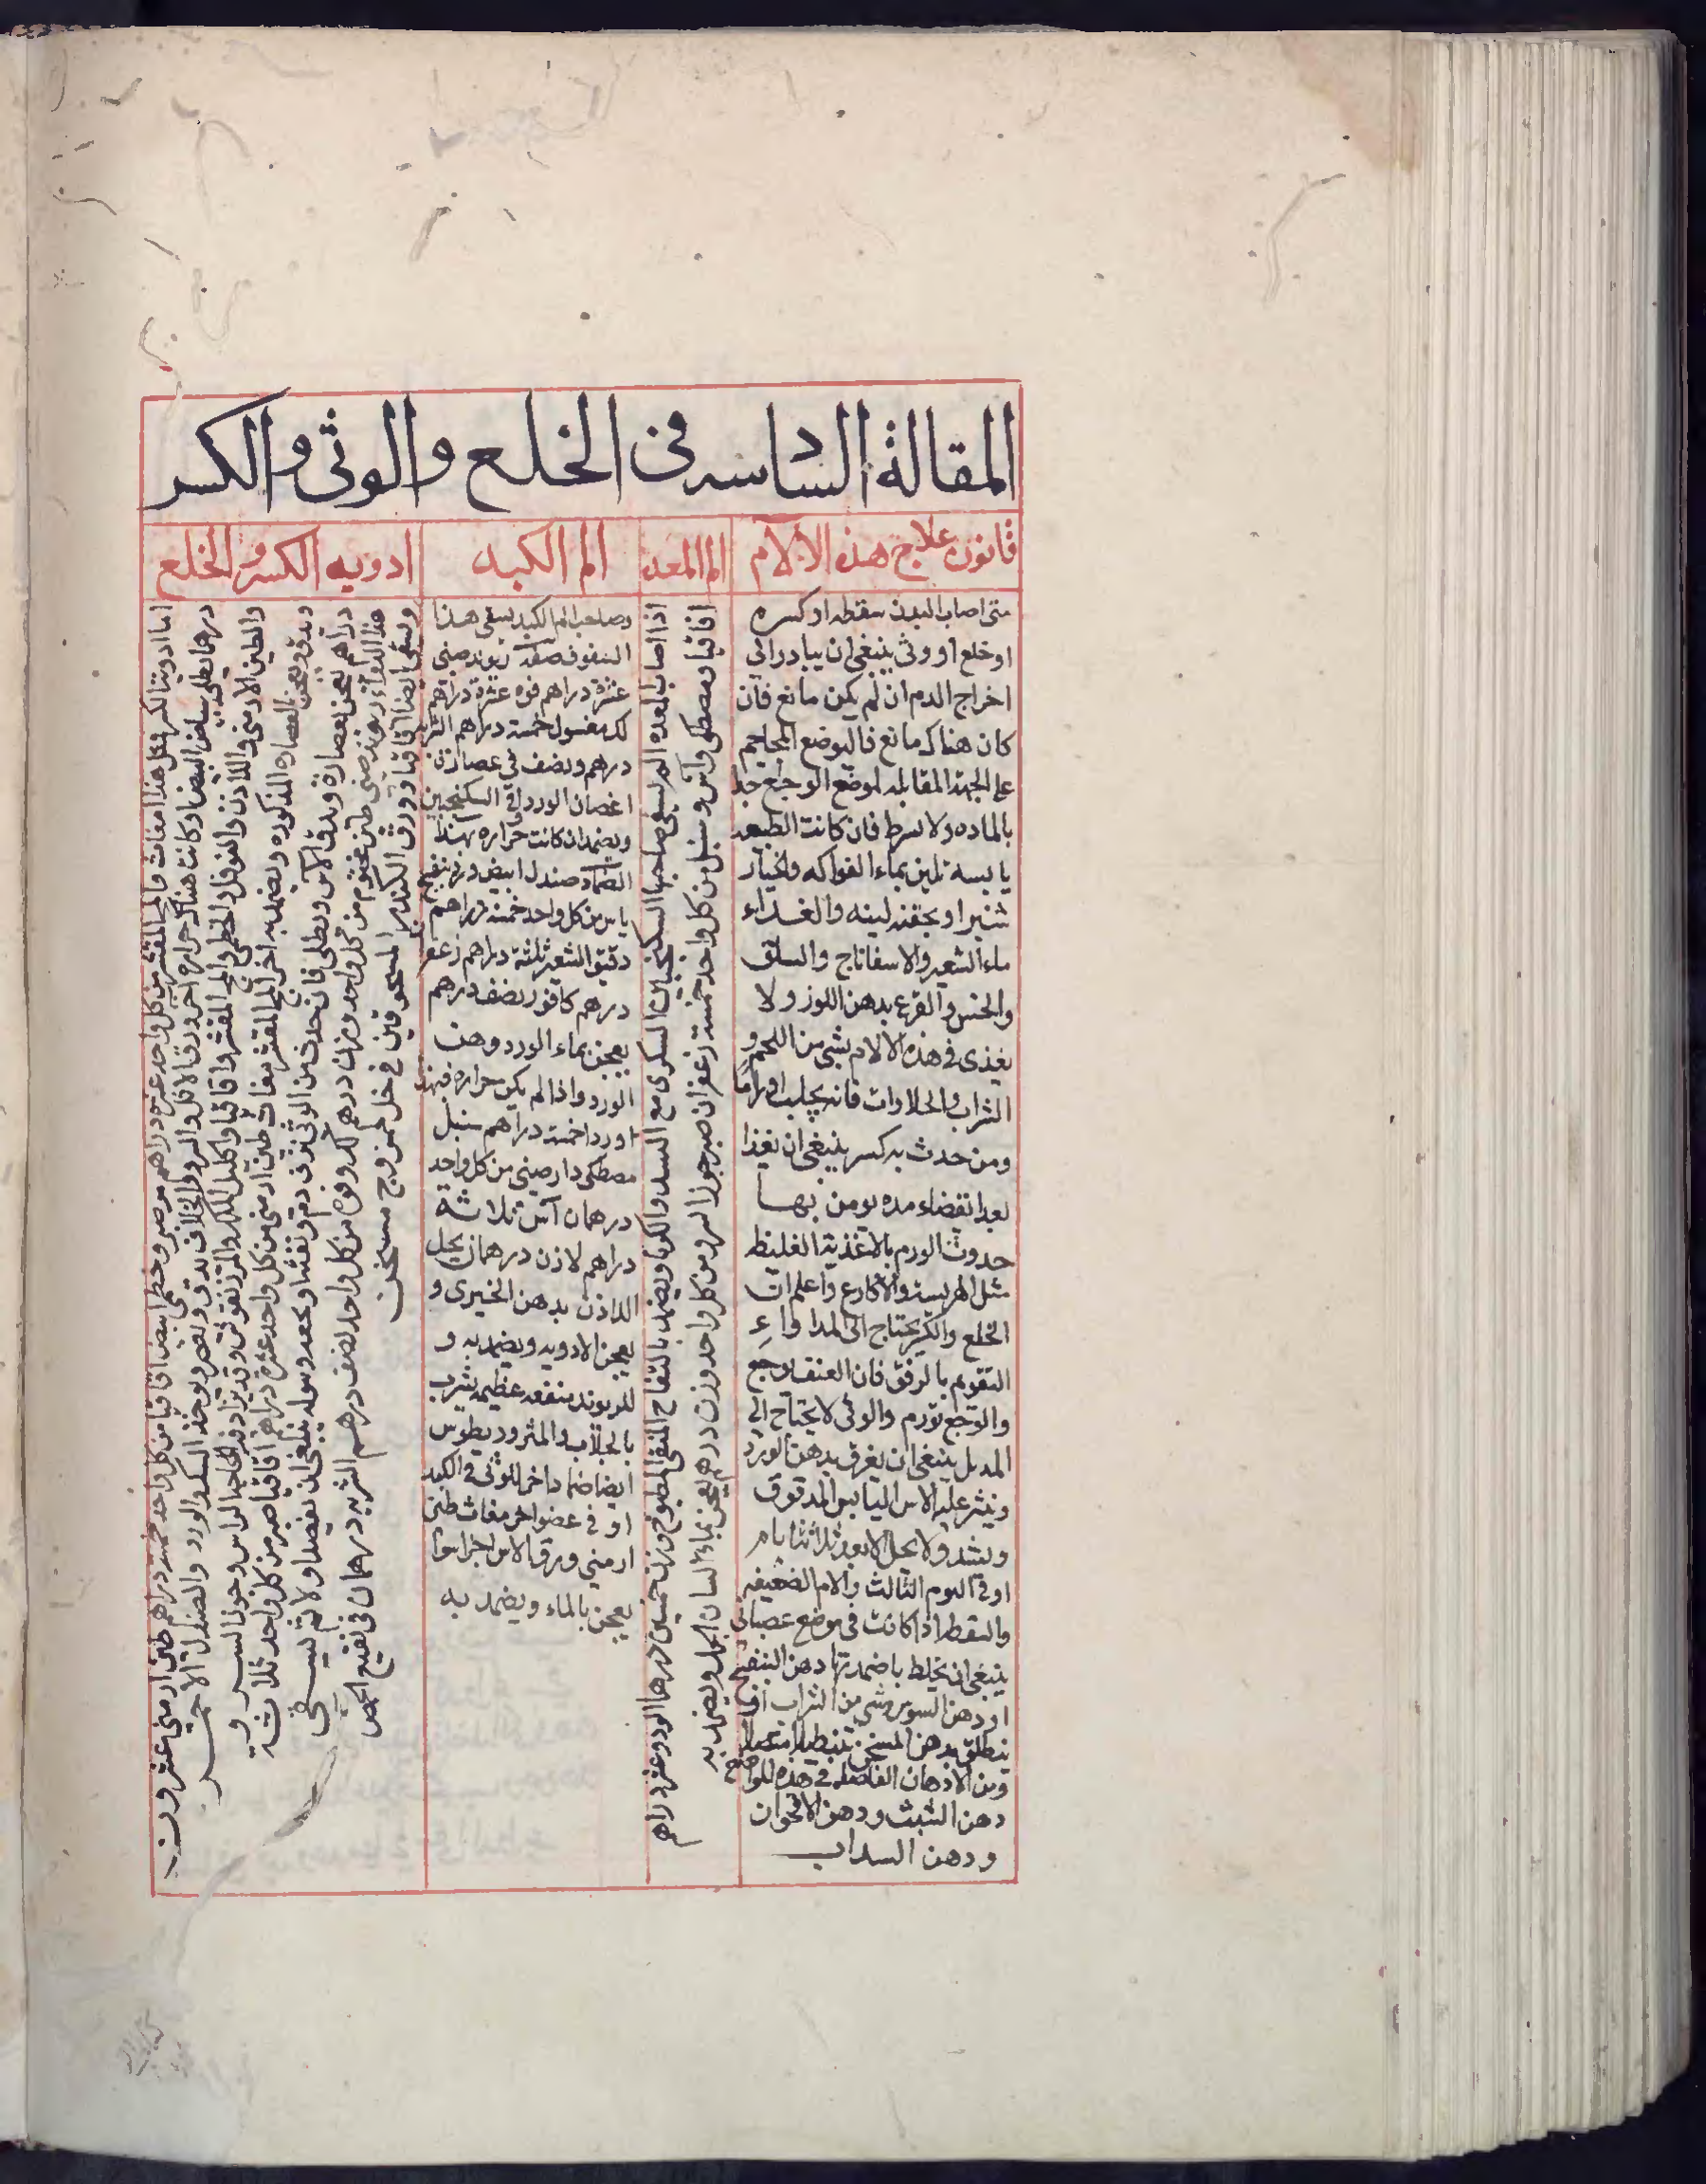 المقالة السادسه فى الخلع والوثى والكسر
قانون علاج هذه الآلام
متى اصاب البدن سقطه او كسره
او خلع او وثى ينبغى ان يبادر الى
اخراج الدم ان لم يكن مانع فان
كان هناك مانع فاليوضع المحاجم
على الجهة المقابله لموضع الوجع جذبا
بالماده ولا يسرط فان كانت الطبيعه
يابسه تلين بماء الفواكه والخيار
شنبر او بحقنه لينه والغذاء
ماء الشعير والاسفاناج والسلق
والخس والقرع بدهن اللوز ولا
يغذى فى هذه الالام بشى من اللحم و
الشراب والحلاوات فانه يجلب اوراما
ومن حدث به كسر ينبغى ان يغذا
بعد انقضاء مده يومن بها
حدوث الورم بالاغذية الغليظه
مثل الهريسة والاكارع واعلم ان
الخلع والكسر يحتاج الى المداواع
التقويم بالرفق فان العنف يوجع
والوجع يورم والوثى لا يحتاج الى
المد بل ينبغى ان يغرق بدهن الورد
وينثر عليه الاس اليابس المدقوق
ويشد ولا يحل الا بعد ثلاثة ايام
او فى اليوم الثالث والالام الضعيفه
والسقطه اذا كانت فى موضع عصبانى
ينبغى ان يخلط باضمدتها دهن البنفسج
او دهن السوسن وشى من الشراب
ينطلق بدهن المسخن تنطيلا متصلا
ومن الادهان الفاضله فى هذه المواضع
دهن الشبث ودهن الاقحوان
ودهن السداب
الم المعده
اذا اصاب المعده الم يسقى صاحبها السكنجبين السكرى مع السد والكربا ويضمد بالتفاح المنقى المطبوخ وزن خمسين درهما الورد وعشره دراهم
اقاقيا ومصطكى وآس وسنبل من كل واحد خمسة زعفران صبر جوز السرو من كل واحد وزن درهم يعجن بماء لسان الحمل ويضمد به
الم الكبد
وصاحب الم الكبد يسقى هذا
السفوف صفته ريوند صينى
عشرة دراهم فوه عشرة دراهم
لك مغسول خمسة دراهم الشربه
درهم ونصف فى عصارة
اغصان الورد او فى السكنجبين
ويضمد ان كانت حراره بهذا
الضماد صندل ابيض ورد بنفسج
يابس من كل واحد خمسة دراهم
دقيق الشعير ثلثة دراهم زعفر
درهم كافور نصف درهم
يعجن بماء الورد ودهن
الورد واذا لم يكن حراره فبهذا
ورد اخمسة دراهم سنبل
مصطكى دارصينى من كل واحد
درهمان آس ثلاثة
دراهم لاذن درهمان يحل
اللاذن بدهن الخيرى و
يعجن الادويه ويضمد به و
للريوند منفعه عظيمه بشرب
بالجلاب والمثروديطوس
ايضا ضماد اخر للوثى فى الكبد
او فى عضو اخر مغاث طين
ارمنى ورق الاس اجزا سوا
يعجن بالماء ويضمد به
ادويه الكسر والخلع
اما ادوية الكسر فمثل هذا مغاث وماش مقشر من كل واحد عشره دراهم مر صبر وخطمى ابيض اقاقيا من كل واحد خمسة دراهم طين ارمنى عشرون
درهما يطلى ببياض البيض او كانت هناك حراره اخر ورق الاثل والسرو والخلاف يدق ويعصر ويوخذ السك والورد والصندل الاحمر
والطين الارمنى واللاذن والفوفل والخطمى والماش المقشر واقاقيا واكليل الملك والمر وقد يزاد فيه الجاج الراس وجوز السرو و
يدق ويعجن بالعصاره المذكوره ويضمد به اخر الماش المقشر مغاث طين ارمنى من كل واحد عشرة دراهم اقاقيا صبر من كل واحد ثلاثة
دراهم يعجن بعصارة ورق الاس ويطلى فان حدث من الوثى نزف دم او نفثه او بعده وسوله ينبغى ان يفصد اولا ثم يسقى
هذا الدواء ريوند صينى طين مختوم من كل واحد وزن درهم لك وفوه من كل واحد نصف درهم الشربه درهمان فى نقيع الحمص
ويسقى ايضا اقاقيا وورق الكندر المسحوقين فى خل خمر مزج مسخن